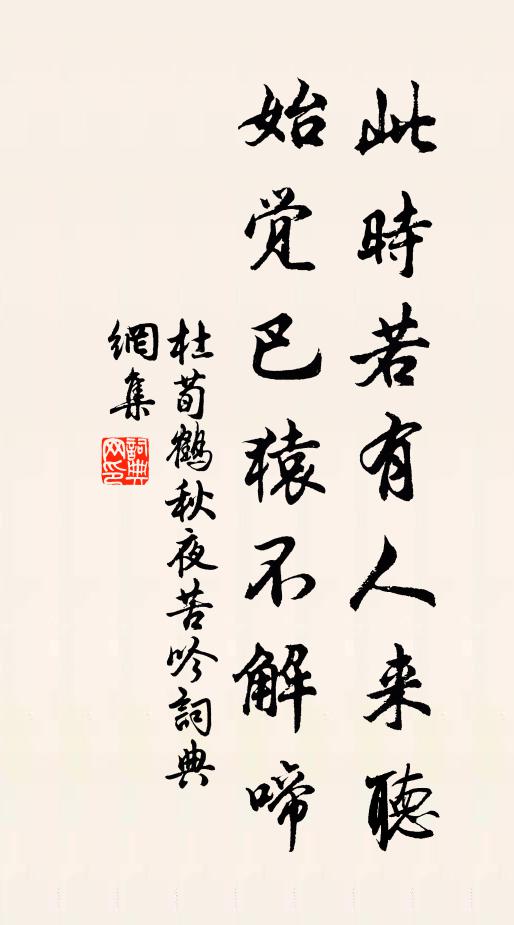 此時若有人来聴
始覚巴猿不解啼
杜荀鶴秋夜苦吟詞典
網集
詞典网印